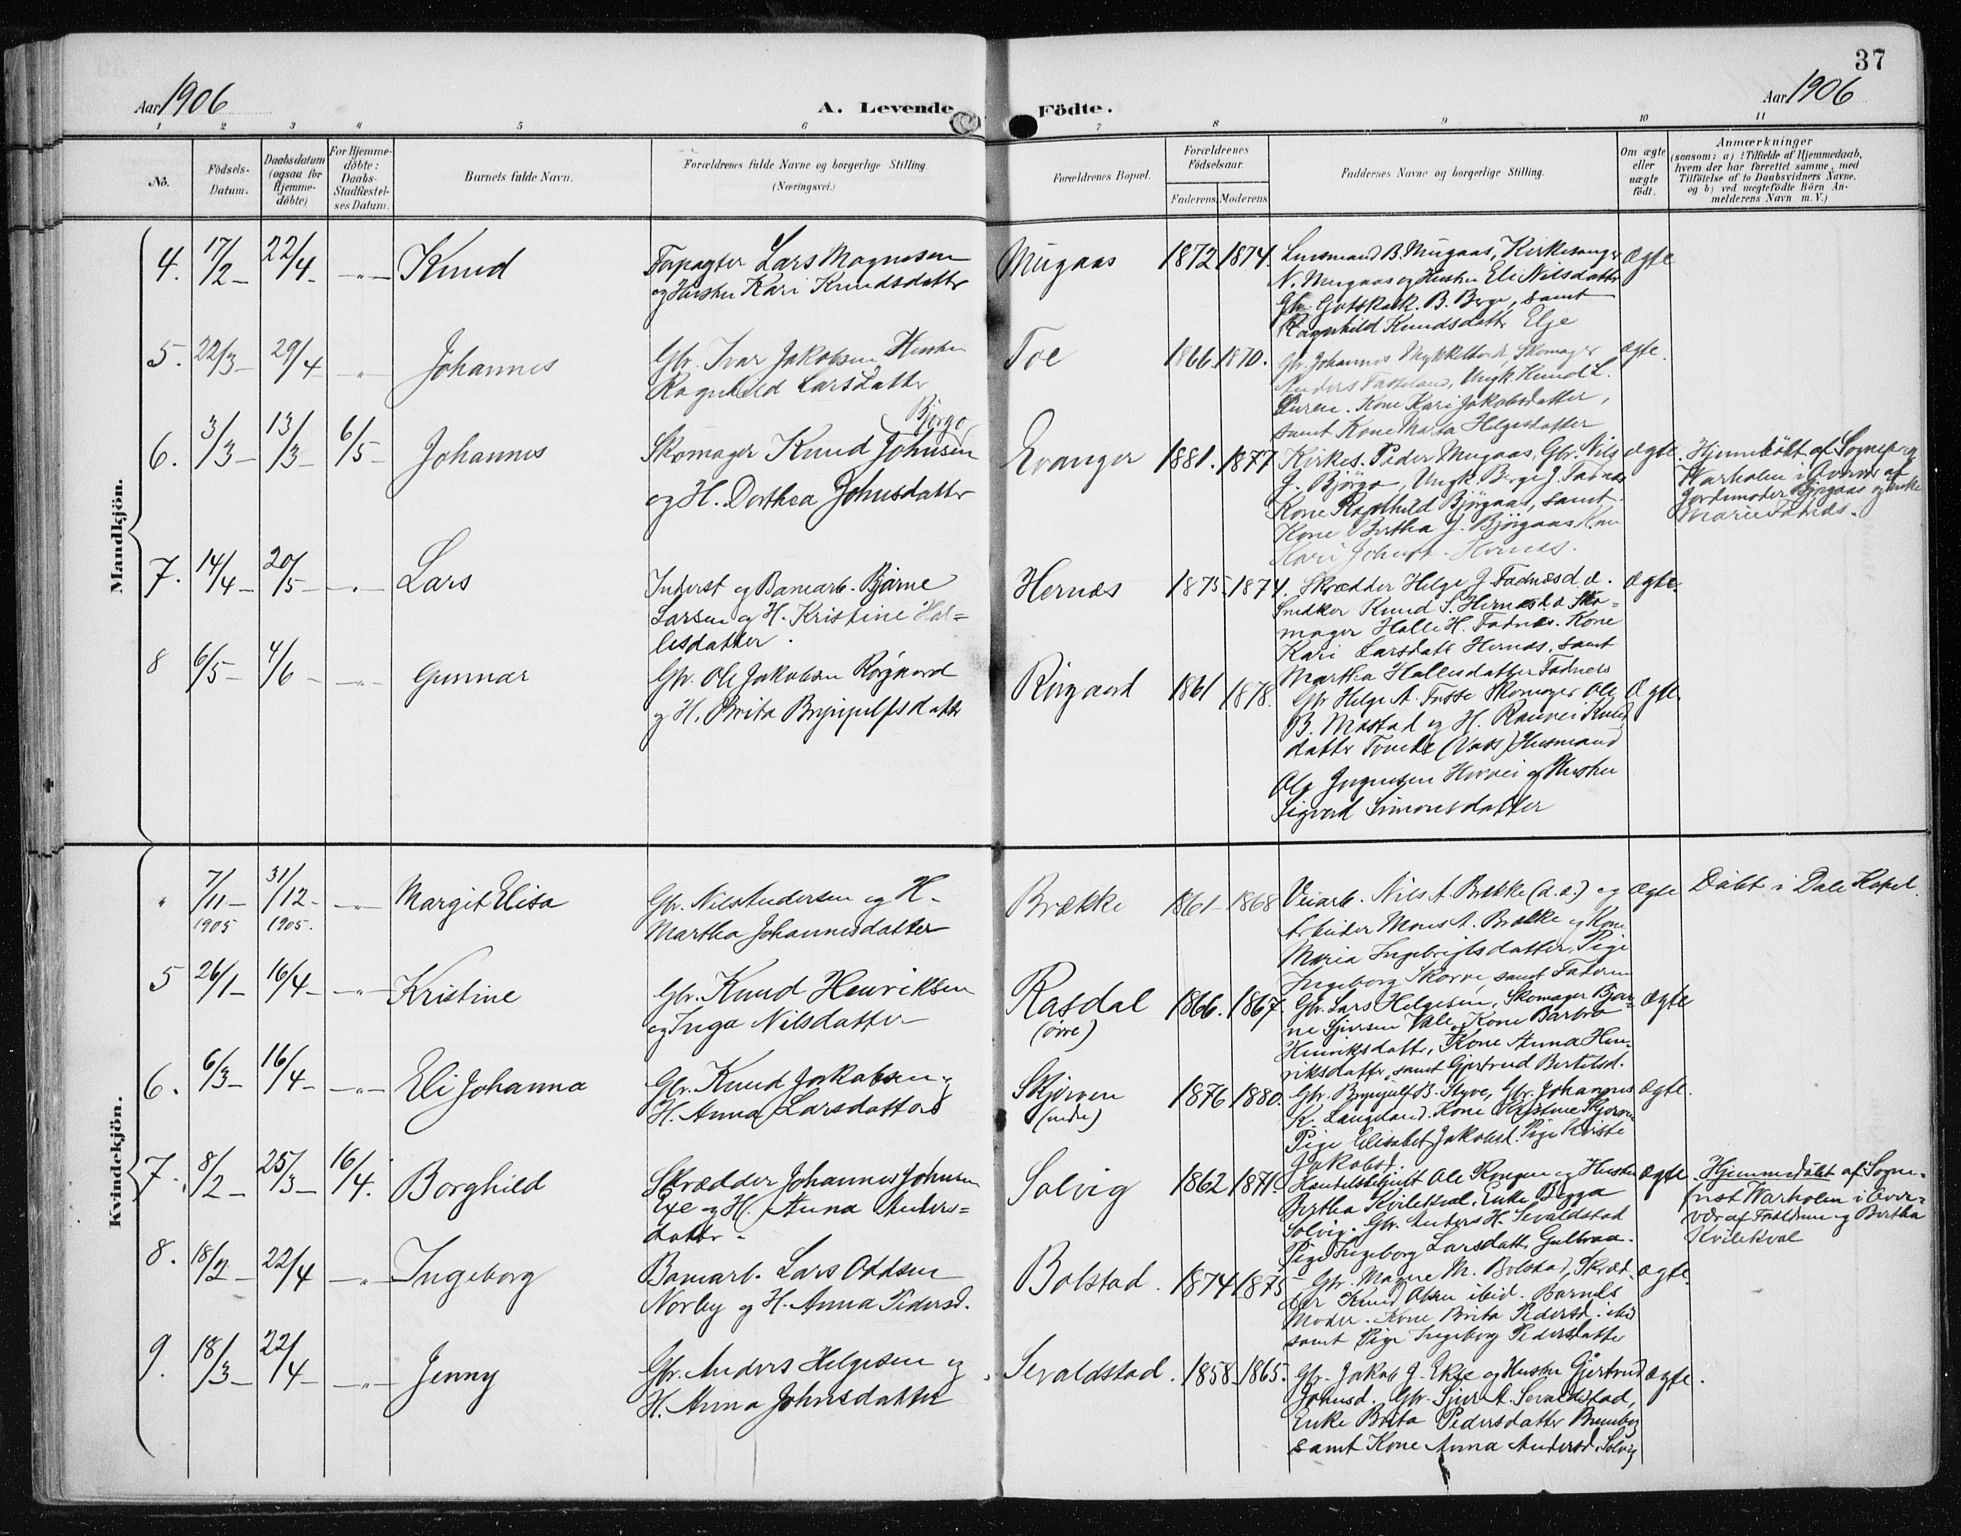 37
Aar 1906
A. Levende Födte.
Aar 1906
1 2 3 4 5 6 7 8 9 10 11
No.
Födsels-
Datum.
Daabsdatum
(ogsaa for
Hjemme-
döbte)
For Hjemme-
döbte:
Daabs-
Stadfæstel-
ses Datum.
Barnets fulde Navn.
Forældrenes fulde Navne og borgerlige Stilling.
(Næringsvei.)
Forældrenes Bopæl.
Forældrenes
Födselsaar.
Faderens. Moderens.
Faddernes Navne og borgerlige Stilling.
Om ægte
eller
uægte
födt.
Anmærkninger
(saasom: a) i Tilfælde af Hjemmedaab,
hvem der har forrettet samme, med
Tilföielse af to Daabsvidners Navne.
og b) ved uægtefödte Börn An-
melderens Navn m. V.)
Mandkjön.
4. 17/2 22/4 —"— Knud
Forpagter Lars Magnesen
og Hustru Kari Knudsdatter
Mugaas 1872 1874.
Lensmand B. Mugaas, Kirkesanger
N. Mugaas og Hustru Eli Nilsdatter
Gbr. Gotskalk B. Berge, samt
Ragnhild Knudsdatter Elje
Ægte
5. 22/3 29/4 " Johannes
Gbr. Ivar Jakobsen Hustru
Ragnhild Larsdatter
Toe 1866. 1870.
Gbr. Johannes Skomager
Anders Ungk. Knud L.
Kone Kari Jakobsdatter,
samt Kone Marta Helgesdatter
ægte.
6. 3/3 13/3 6/5 Johannes
Skomager Knud Johnsen Bjørgo
og H. Dorthea Johnsdatter
Evanger 1881. 1877
Kirkes. Peder Mugaas, Gbr. Nils
J. Bjørgo, Ungk. Berge J. Fadnes
Kone Ragnhild Bjørgaas, samt
Kone Birtha J. Bjørgaas, Kone
Kari Johnsd. Hernes.
ægte.
Hjemmedøbt af Sognepr.
Warholm i Overvær af
Jordemoder Bjørgaas og Enke
Marie Fadnes.
7. 14/4 20/5 —"— Lars
Inderst og Banearb. Bjarne
Larsen og H. Kristine Hal-
lesdatter.
Hernes 1875. 1874.
Skrædder Helge J. Fadnes d.e.
Snedker Knud S. Hernes d.e. Sko-
mager Halle H. Fadnes. Kone
Kari Larsdatt. Hernes, samt
Martha Hallesdatter Fadnes
Ægte.
8 6/5 4/6 —"— Gunnar
Gbr. Ole Jakobsen Rørgaard
og H. Brita Brynjulfsdatter
Rørgaard 1861 1878.
Gbr. Helge A. Fosse Skomager Ole
B. Mostad og H. Knuds-
datter (Voss) Husmand
Ole og Hustru
Sigvord Simonsdatter
Ægte.
Kvindekjön.
" 7/11 1905 31/12 1905. —"— Margit Elisa
Gbr. Nils Andersen og H.
Martha Johannesdatter
Brække 1861 1868
Veiarb. Nils A. Brække (d.e.) og
Arbeider Mons A. Brække og Kone
Maria Ingebrigtsdatter, Pige
Ingeborg Skorve, samt Faderen
Ægte
Døbt i Dale Kapel.
5 26/1 16/4 —"— Kristine
Gbr. Knud Henriksen
og Inga Nilsdatter
Rasdal
(øvre)
1866. 1867.
Gbr. Lars Helgesen, Skomager Bjar-
ne Sjursen Vale, Kone Barbra
Henriksdatter, Kone Anna Hen-
riksdatter, samt Gjertrud Bertelsd.
Ægte
6. 6/3 16/4 —"— Eli Johanna
Gbr. Knud Jakobsen og
H. Anna Larsdatter
Skjerven
(nedre)
1876 1880.
Gbr. Brynjulf B. Styve, Gbr. Johannes
K. Langeland, Kone Kristine Skjerven
Pige Elisabet Jakobsd. Pige Kriste
Jakobsd.
Ægte.
7. 8/2 25/3 16/4. Borghild
Skrædder Johannes Johnsen
Exe og H. Anna Anders-
datter.
Solvig 1862 1871.
Handelsbetjent Ole Rongen og Hustru
Birtha Kvilekval, Enke Brita
Solvig. Gbr. Anders H. Sevaldstad
Pige Ingeborg Larsdatt.
Ægte
Hjemmedøbt af Sogne-
prst Warholm i Over-
vær af Faderen og Birtha
Kvilekval
8. 18/2 22/4 —"— Ingeborg
Banearb. Lars Oddsen
Norby og H. Anna Pedersd.
Bolstad. 1874 1875
Gbr. Magne M. Bolstad, Skræd-
der Knud Olsen ibid. Barnets
Moder. Kone Brita Pedersd. ibid
samt Pige Ingeborg Pedersdatter
Ægte
9. 18/3 22/4 —"— Jenny
Gbr. Anders Helgesen og
H. Anna Johnsdatter
Sevaldstad. 1858 1865.
Gbr. Jakob J. Ekse og Hustru Gjertrud
Johnsd., Gbr. Sjur A. Sevaldstad,
Enke Brita Pedersdatter
samt Kone Anna Andersd. Solvig
Ægte.